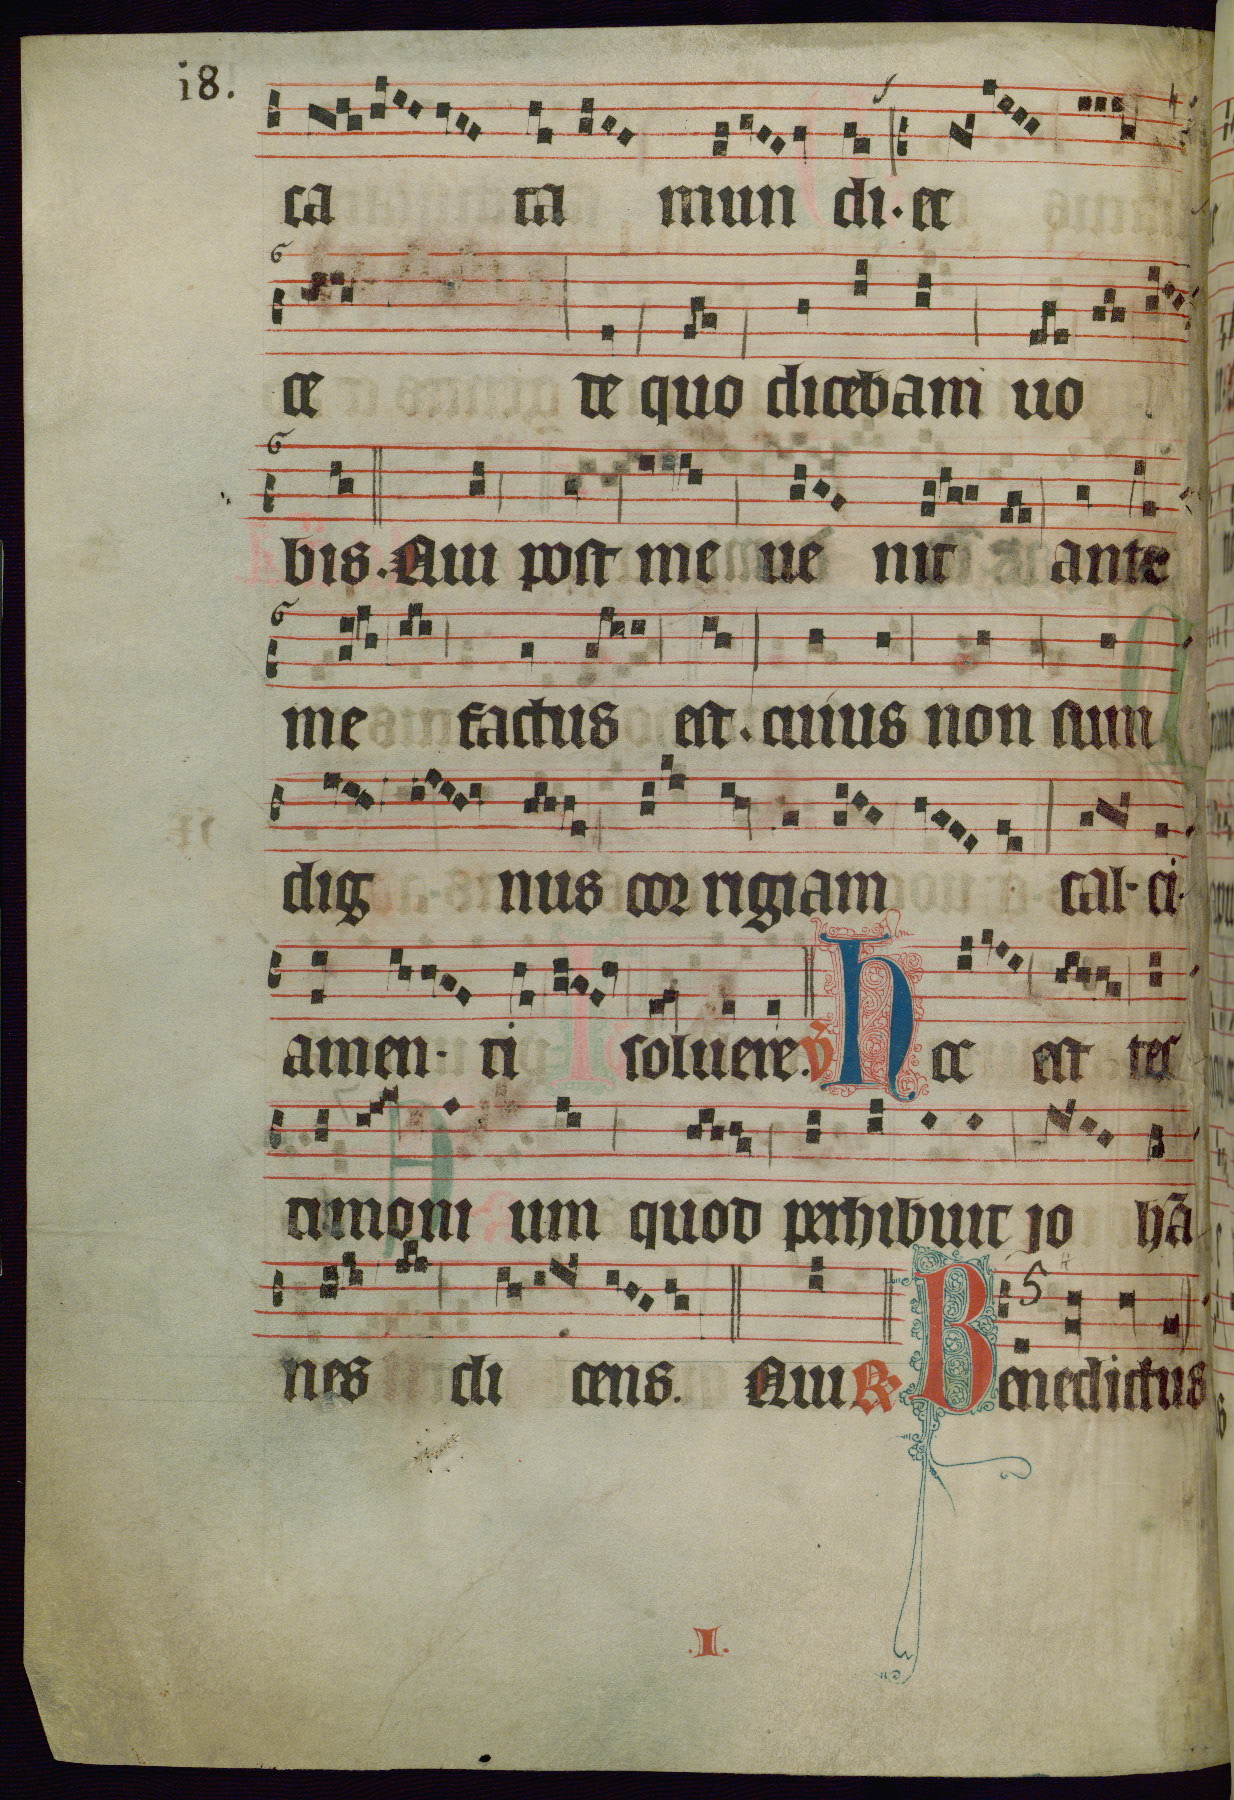 18.
ca ta mun di. et
G
ce te quo dicebam uo
G
bis. Qui post me ue nit ante
G
me factus est. cuius non sum
dig nus cor rigiam cal- ci-
amen- ti soluere. v̄ H ec est tes
timoni um quod perhibuit jo hā
nes di cens. Qui R Benedictus
5
.I.